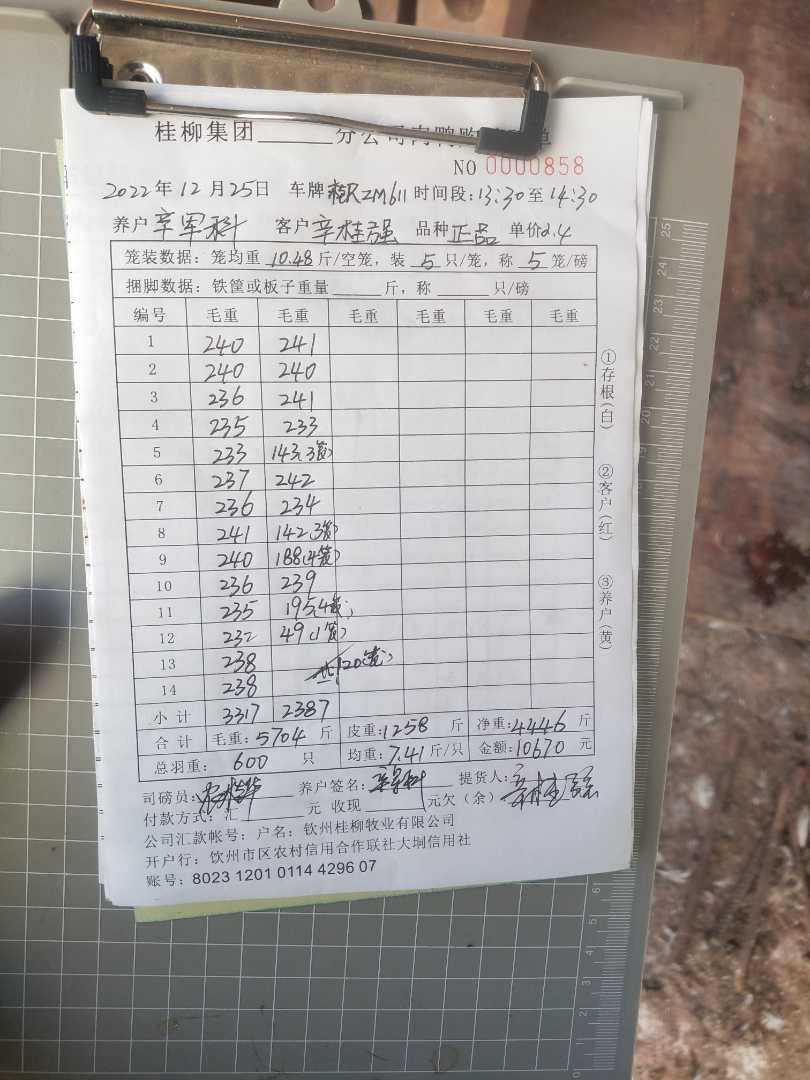 桂柳集团______分公司肉鸭购 单
NO 0000858
2022年12月25日 车牌 ZM611 时间段:13:30至14:30
养户 辛军科 客户 辛桂强 品种 正品 单价2.4
笼装数据:笼均重 10.48 斤/空笼,装 5 只/笼,称 5 笼/磅
捆脚数据:铁筐或板子重量______斤,称______只/磅
编号 毛重 毛重 毛重 毛重 毛重 毛重
1 240 241
2 240 240
3 236 241
4 235 233
5 233 143(3笼)
6 237 242
7 236 234
8 241 142(3笼)
9 240 188(4笼)
10 236 239
11 235 195(4笼)
12 232 49(1笼)
13 238 共120(笼)
14 238
小计 3317 2387
合计 毛重:5704 斤 皮重:1258 斤 净重:4446 斤
总羽重: 600 只 均重:7.41斤/只 金额:10670 元
司磅员: 养户签名:辛军科 提货人:辛桂强
付款方式:汇______元 收现______元欠(余)
公司汇款帐号:户名:钦州桂柳牧业有限公司
开户行:钦州市区农村信用合作联社大垌信用社
账号:8023 1201 0114 4296 07
①存根(白)
②客户(红)
③养户(黄)
25
24
23
22
21
20
19
6
5
4
3
2
1
0